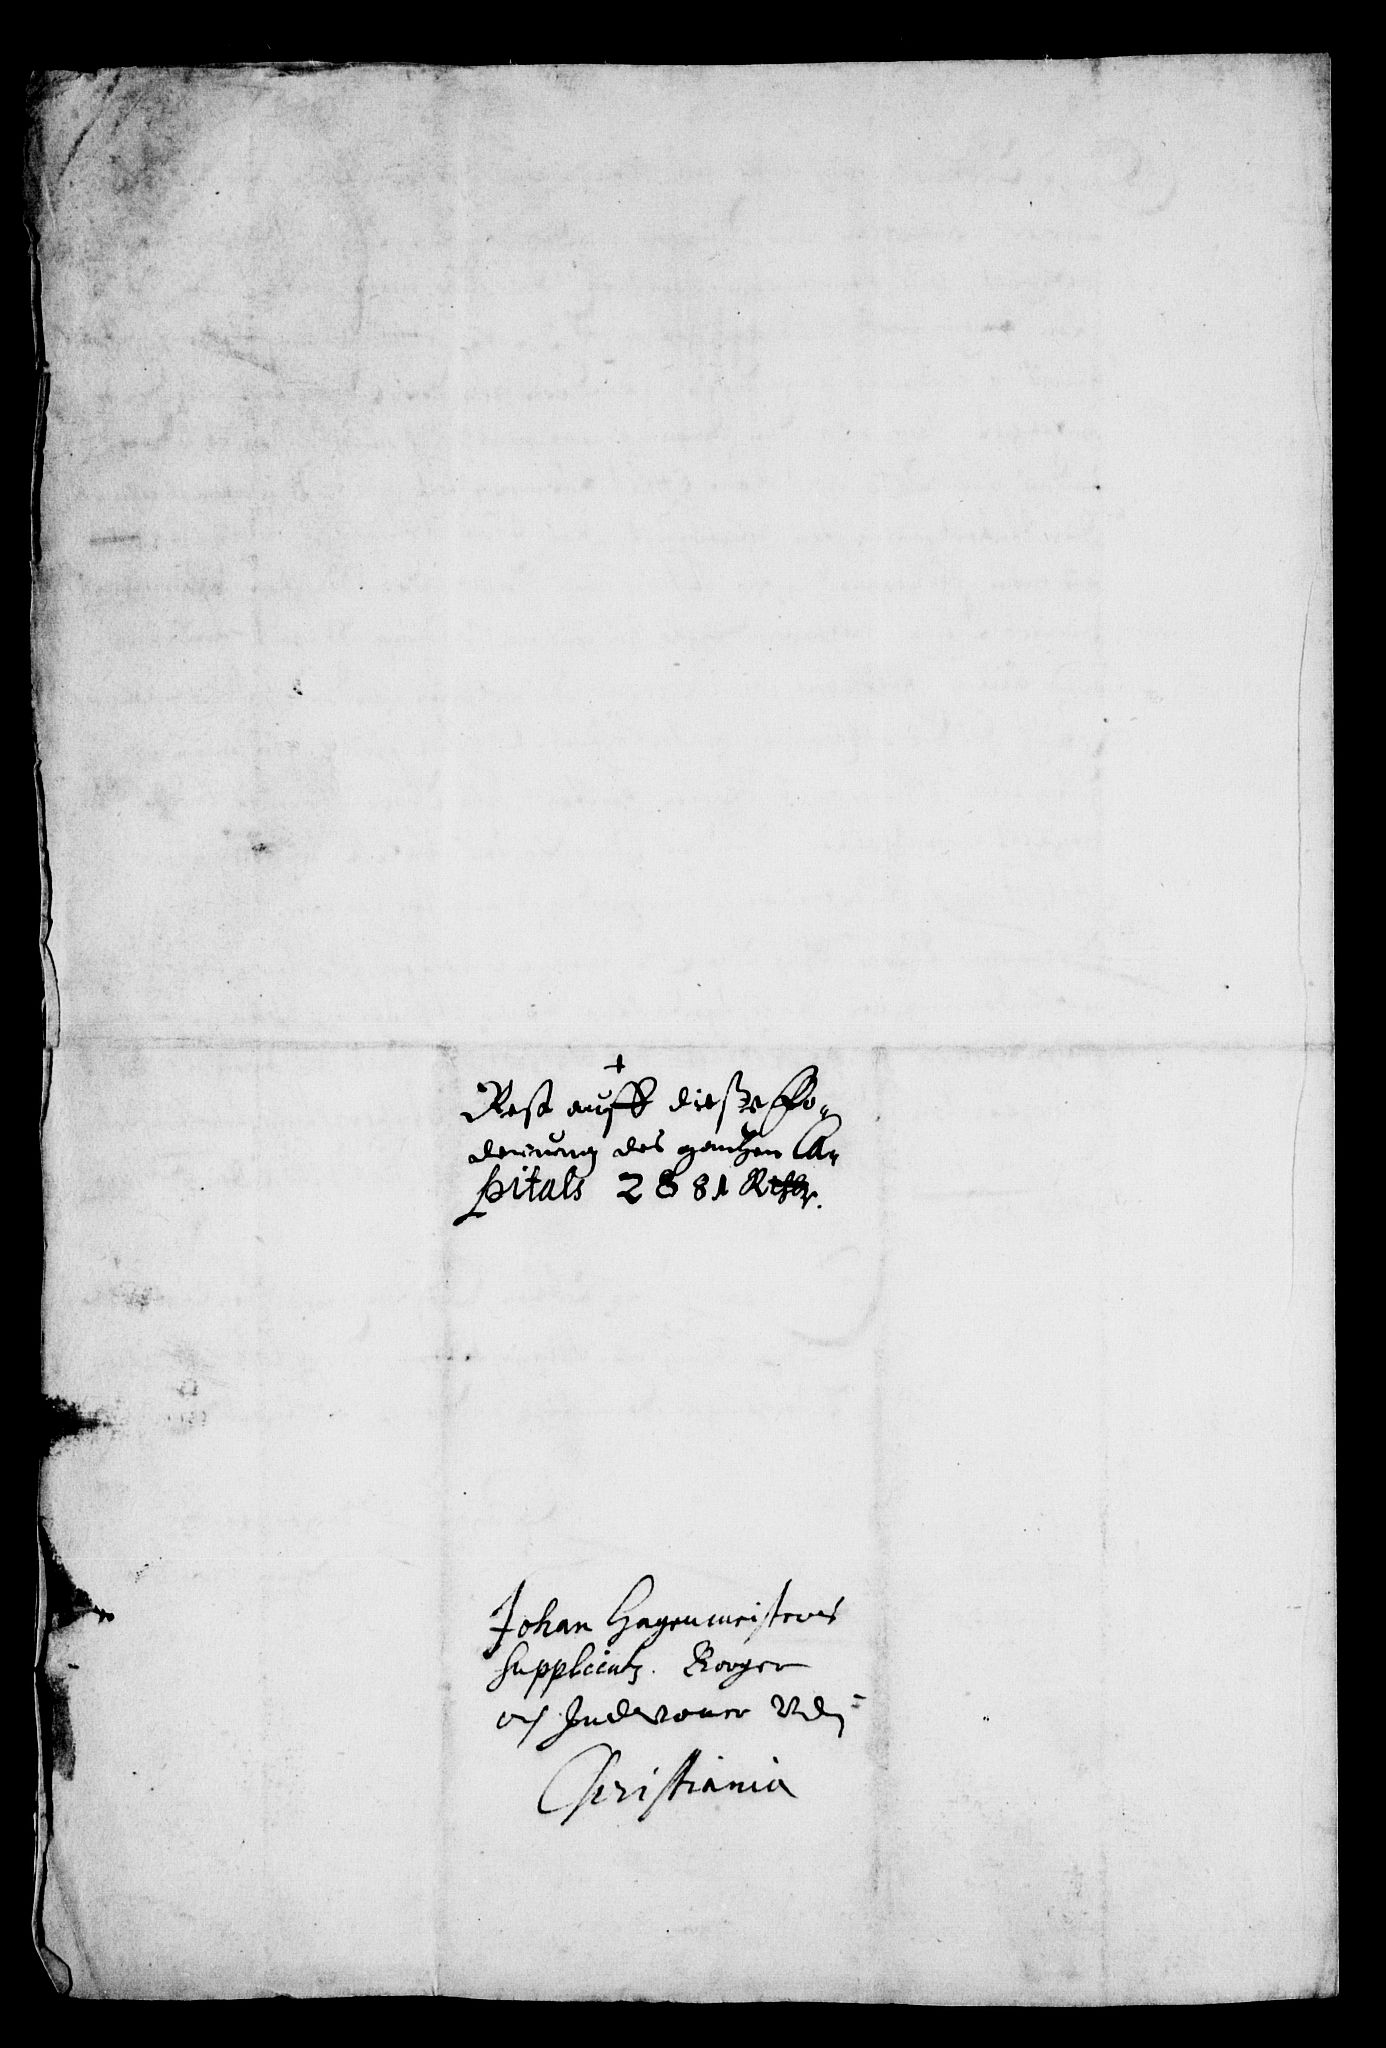 +
Rest auff dieße Fo-
derung des gantzen Ca-
pitals 2881 Rthlr.
Johan Hagenmeisters
Supplicatz. Borger
och Indvoner Vdj
Christiania